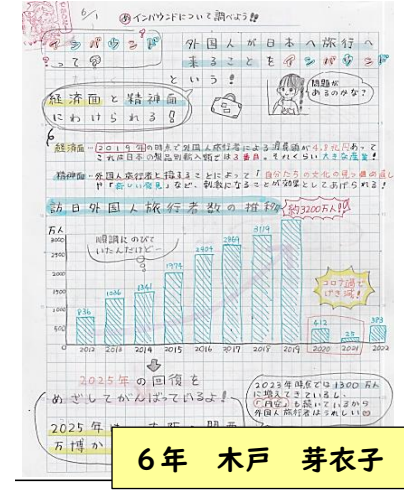 6/1
インバウンドについて調べよう!!
インバウンド
って?
外国人が日本へ旅行へ
来ることをインバウンド
という!
問題が
あるのかな?
経済面と精神面
にわけられる!
経済面…2019年の時点で外国人旅行者による消費額が4.8兆円あって
これは日本の製品別輸入額では3番目。それくらい大きな産業!
精神面…外国人と接することによって「自分たちの文化の見つめ直し」
や「新しい発見」など、刺激になることが効果としてあげられる!
訪日外国人旅行者数の推移
約3200万人!!
万人
3000
2500
2000
1500
1000
500
順調にのびて
いたんだけど…
836
1036
1341
1974
2404
2869
3119
412
25
383
コロナ禍で
げき減!
2012 2013 2014 2015 2016 2017 2018 2019 2020 2021 2022
2025年の回復を
めざしてがんばっているよ!
2025年は
万博か
2023年時点では1300万人
に増えてきているし、
「円安」も続いているから
外国人旅行者はうれしい
6年 木戸 芽衣子